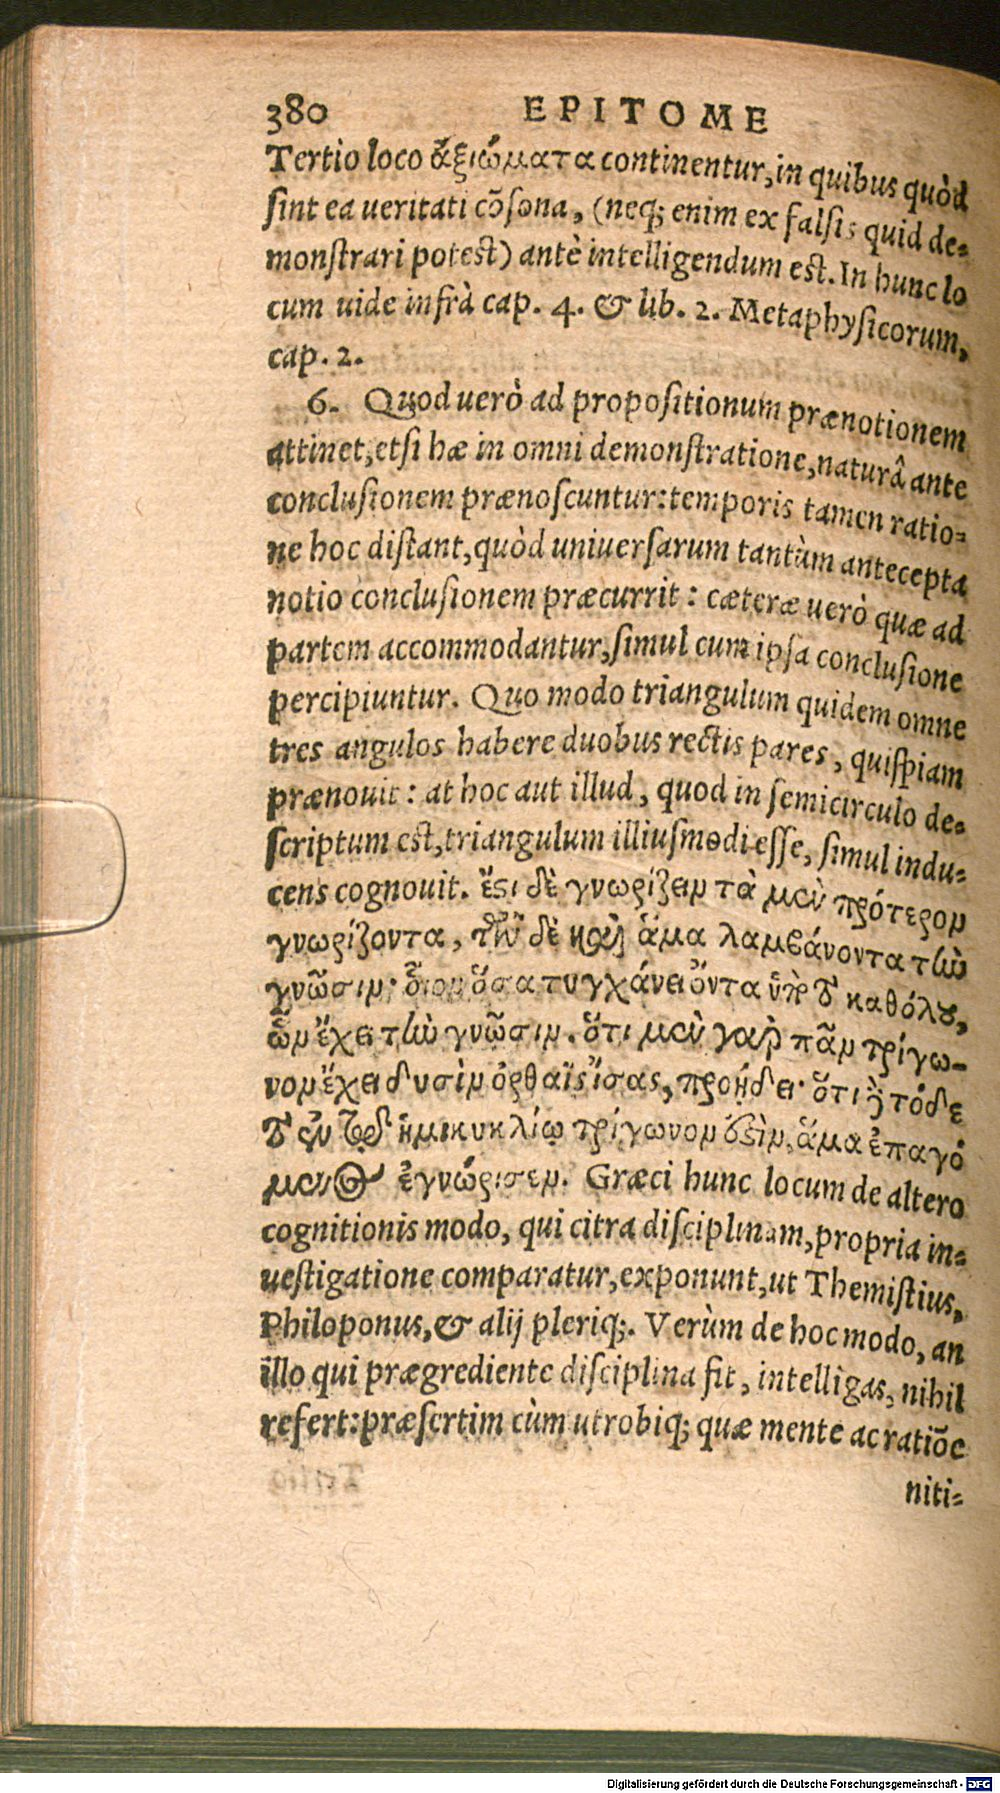 380 EPITOME
Tertio loco ἀξιώματα continentur, in quibus quòd
sint ea ueritati cōsona, (neq; enim ex falsis quid de-
monstrari potest) antè intelligendum est. In hunc lo
cum uide infrà cap. 4. & lib. 2. Metaphysicorum,
cap. 2.
6. Quod uerò ad propositionum prænotionem
attinet, etsi hæ in omni demonstratione, naturâ ante
conclusionem prænoscuntur: temporis tamen ratio-
ne hoc distant, quòd uniuersarum tantùm antecepta
notio conclusionem præcurrit: cæteræ uerò quæ ad
partem accommodantur, simul cum ipsa conclusione
percipiuntur. Quo modo triangulum quidem omne
tres angulos habere duobus rectis pares, quispiam
prænouit: at hoc aut illud, quod in semicirculo de-
scriptum est, triangulum illiusmodi esse, simul indu-
cens cognouit. ἔςι δὲ γνωρίζειν τὰ μὲν πρότερον
γνωρίζοντα, τῶν δὲ καὶ ἅμα λαμβάνοντα τὴν
γνῶσιν· οἷον ὅσα τυγχάνει ὄντα ὑπὸ τὸ καθόλου,
ὧν ἔχει τὴν γνῶσιν. ὅτι μὲν γὰρ πᾶν τρίγω-
νον ἔχει δυσὶν ὀρθαῖς ἴσας, προῄδει· ὅτι δὲ τόδε
τὸ ἐν τῷ ἡμικυκλίῳ τρίγωνον ἐςὶν, ἅμα ἐπαγό
μενος ἐγνώρισεν. Græci hunc locum de altero
cognitionis modo, qui citra disciplinam, propria in-
uestigatione comparatur, exponunt, ut Themistius,
Philoponus, & alij pleriq;. Verùm de hoc modo, an
illo qui prægrediente disciplina fit, intelligas, nihil
refert: præsertim cùm utrobiq; quæ mente ac ratiōe
niti-
Digitalisierung gefördert durch die Deutsche Forschungsgemeinschaft - DFG